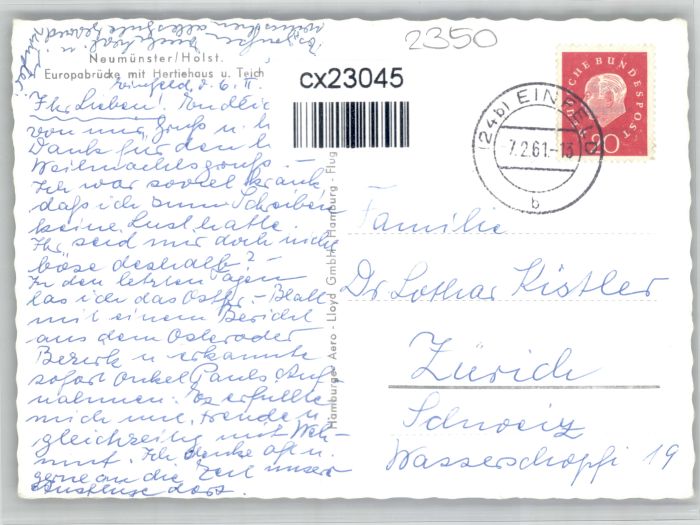 2350
Neumünster/Holst.
Europabrücke mit Hertiehaus u. Teich
cx23045
DEUTSCHE BUNDESPOST
20
(24b) EINFELD
-7.2.61.-13
b
Einfeld, d. 6. II.
Ihr Lieben! Endlic
von mir Gruß u. h
Dank für den l
Weihnachtsgruß. –
Ich war soviel krank,
daß ich zum Schreiben
keine Lust hatte.
Ihr seid mir doch nicht
böse deshalb? –
In den letzten Tagen
las ich das Ostpr.-Blatt
mit einem Bericht
aus dem Osteroder
Bezirk u. erkannte
sofort Onkel Pauls Auf
nahmen. Es erfüllte
mich mit Freude u.
gleichzeitig mit Weh-
mut. Ich denke oft u.
gerne an die Zeit unserer
dort.
Hamburger Aero - Lloyd GmbH, Hamburg - Flug
Familie
Dr Lothar Kistler
Zürich
Schweiz
Wasserschöpfi 19